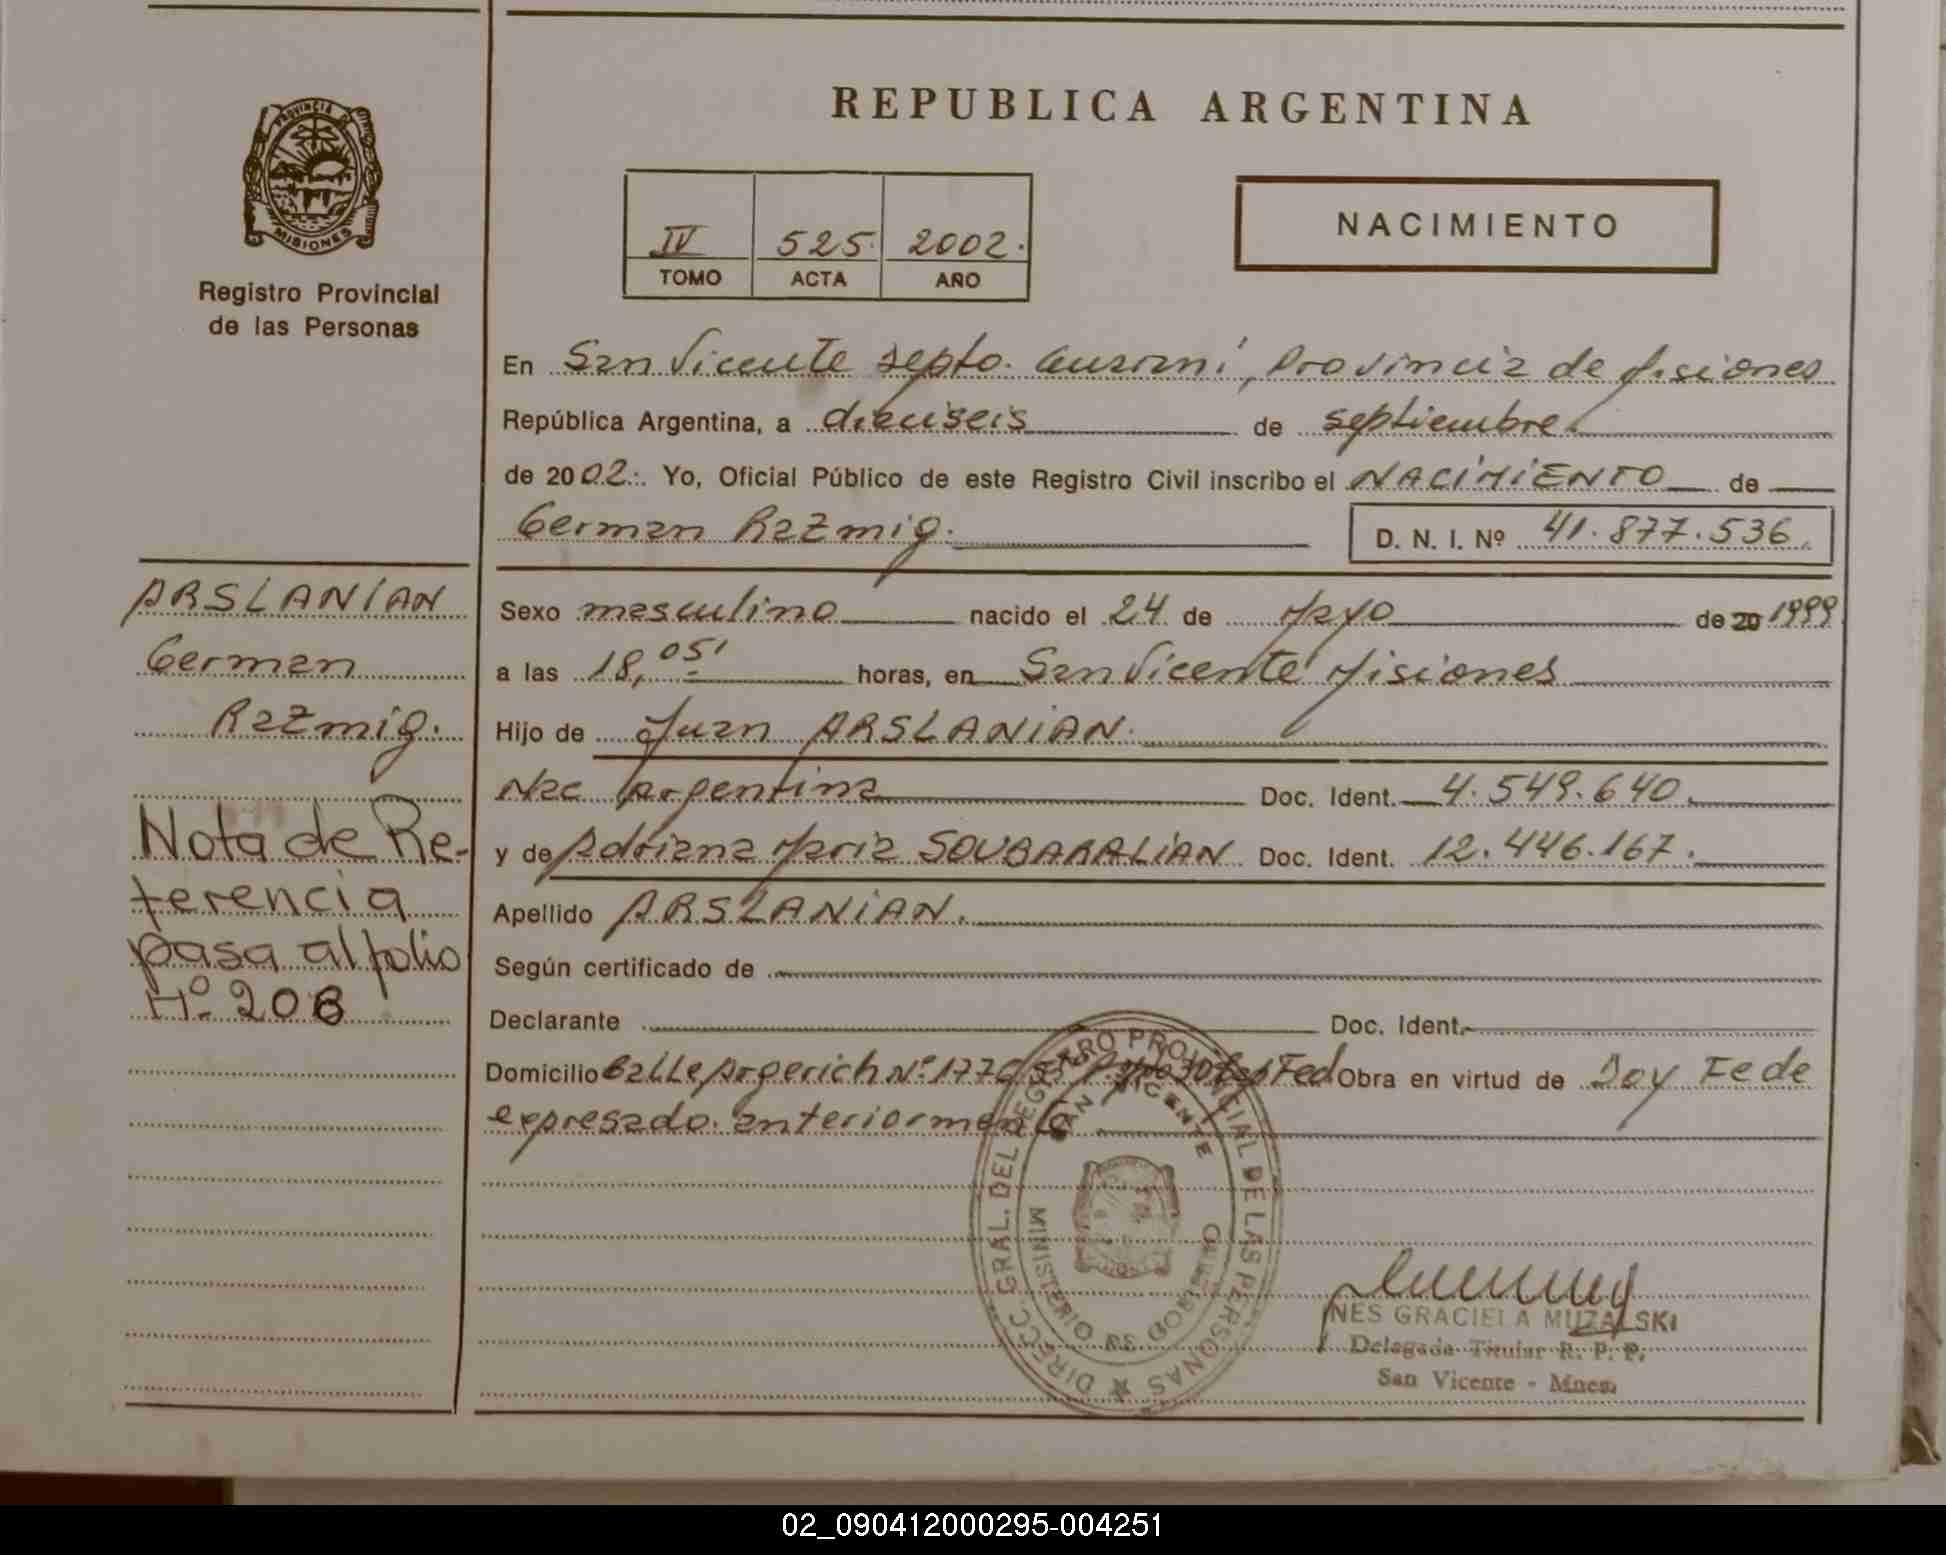 REPUBLICA ARGENTINA
PROVINCIA DE
MISIONES
Registro Provincial
de las Personas
IV 525. 2002.
TOMO ACTA AÑO
NACIMIENTO
En San Vicente Depto. Guaraní, Provincia de Misiones
República Argentina, a dieciseis de septiembre
de 2002. Yo, Oficial Público de este Registro Civil inscribo el NACIMIENTO de
German Razmig. D. N. I. Nº 41.877.536.
Sexo masculino nacido el 24 de Mayo de 20 1999
a las 18,05' horas, en San Vicente Misiones
Hijo de Juan ARSLANIAN.
Nac Argentina Doc. Ident. 4.549.640.
y de Adriana Maria SOUBARALIAN Doc. Ident. 12.446.167.
Apellido ARSLANIAN.
Según certificado de
Declarante Doc. Ident.
Domicilio Calle Argerich Nº 1770 Cap Fed Obra en virtud de Doy Fe de
expresado anteriormente
ARSLANIAN
German
Razmig.
Nota de Re-
ferencia
pasa al folio
Nº 206
DIRECC. GRAL. DEL REGISTRO PROVINCIAL DE LAS PERSONAS
SAN VICENTE
MINISTERIO DE GOBIERNO
INES GRACIELA MUZALSKI
Delegada Titular R. P. P.
San Vicente - Mnes.
02_090412000295-004251